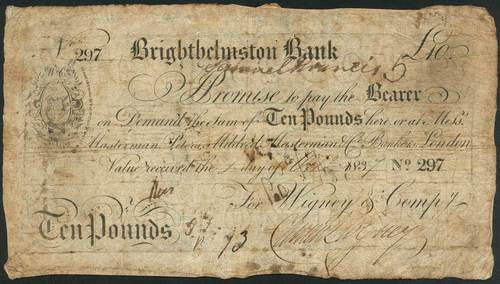 297 Brighthelmston Bank £10
Samuel Francis 5
Promise to pay the Bearer
on Demand the Sum of Ten Pounds here, or at Messrs.
Masterman, Peters, Mildred, Masterman & Co. Bankers, London
Value received the 1 day of 1837 No 297
For Wigney & Compy.
Ten Pounds